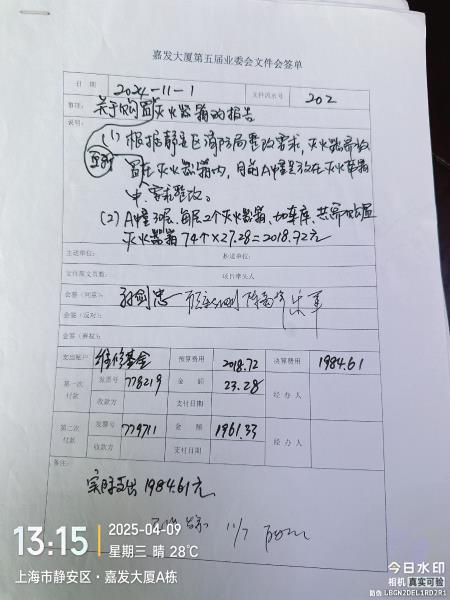 嘉发大厦第五届业委会文件会签单
日 期 2024-11-1 文件流水号 202
事项: 关于购置灭火器箱的报告
说明:
(1) 根据静安区消防局整改要求,灭火器需放
置在灭火器箱内,目前A幢是放在灭火草箱
中,需求整改。
(2) A幢30层,每层2个灭火器箱、加车库、共需购置
灭火器箱74个×27.28=2018.72元
主送单位: 抄送单位:
文件原文页数: 项目牵头人
会签(同意):
会签(反对):
会签(弃权):
支出账户 维修基金 预算费用 2018.72 决算费用 1984.61
第一次付款 发票号 778219 金 额 23.28 经 办 人
收款方 支付日期
第二次付款 发票号 779711 金 额 1961.33 经 办 人
收款方 支付日期
备注:
实际支出1984.61元
11/7
13:15 2025-04-09
星期三 晴 28℃
上海市静安区·嘉发大厦A栋
今日水印
相机 真实可验
防伪 LBGN2DEL1RD2R1